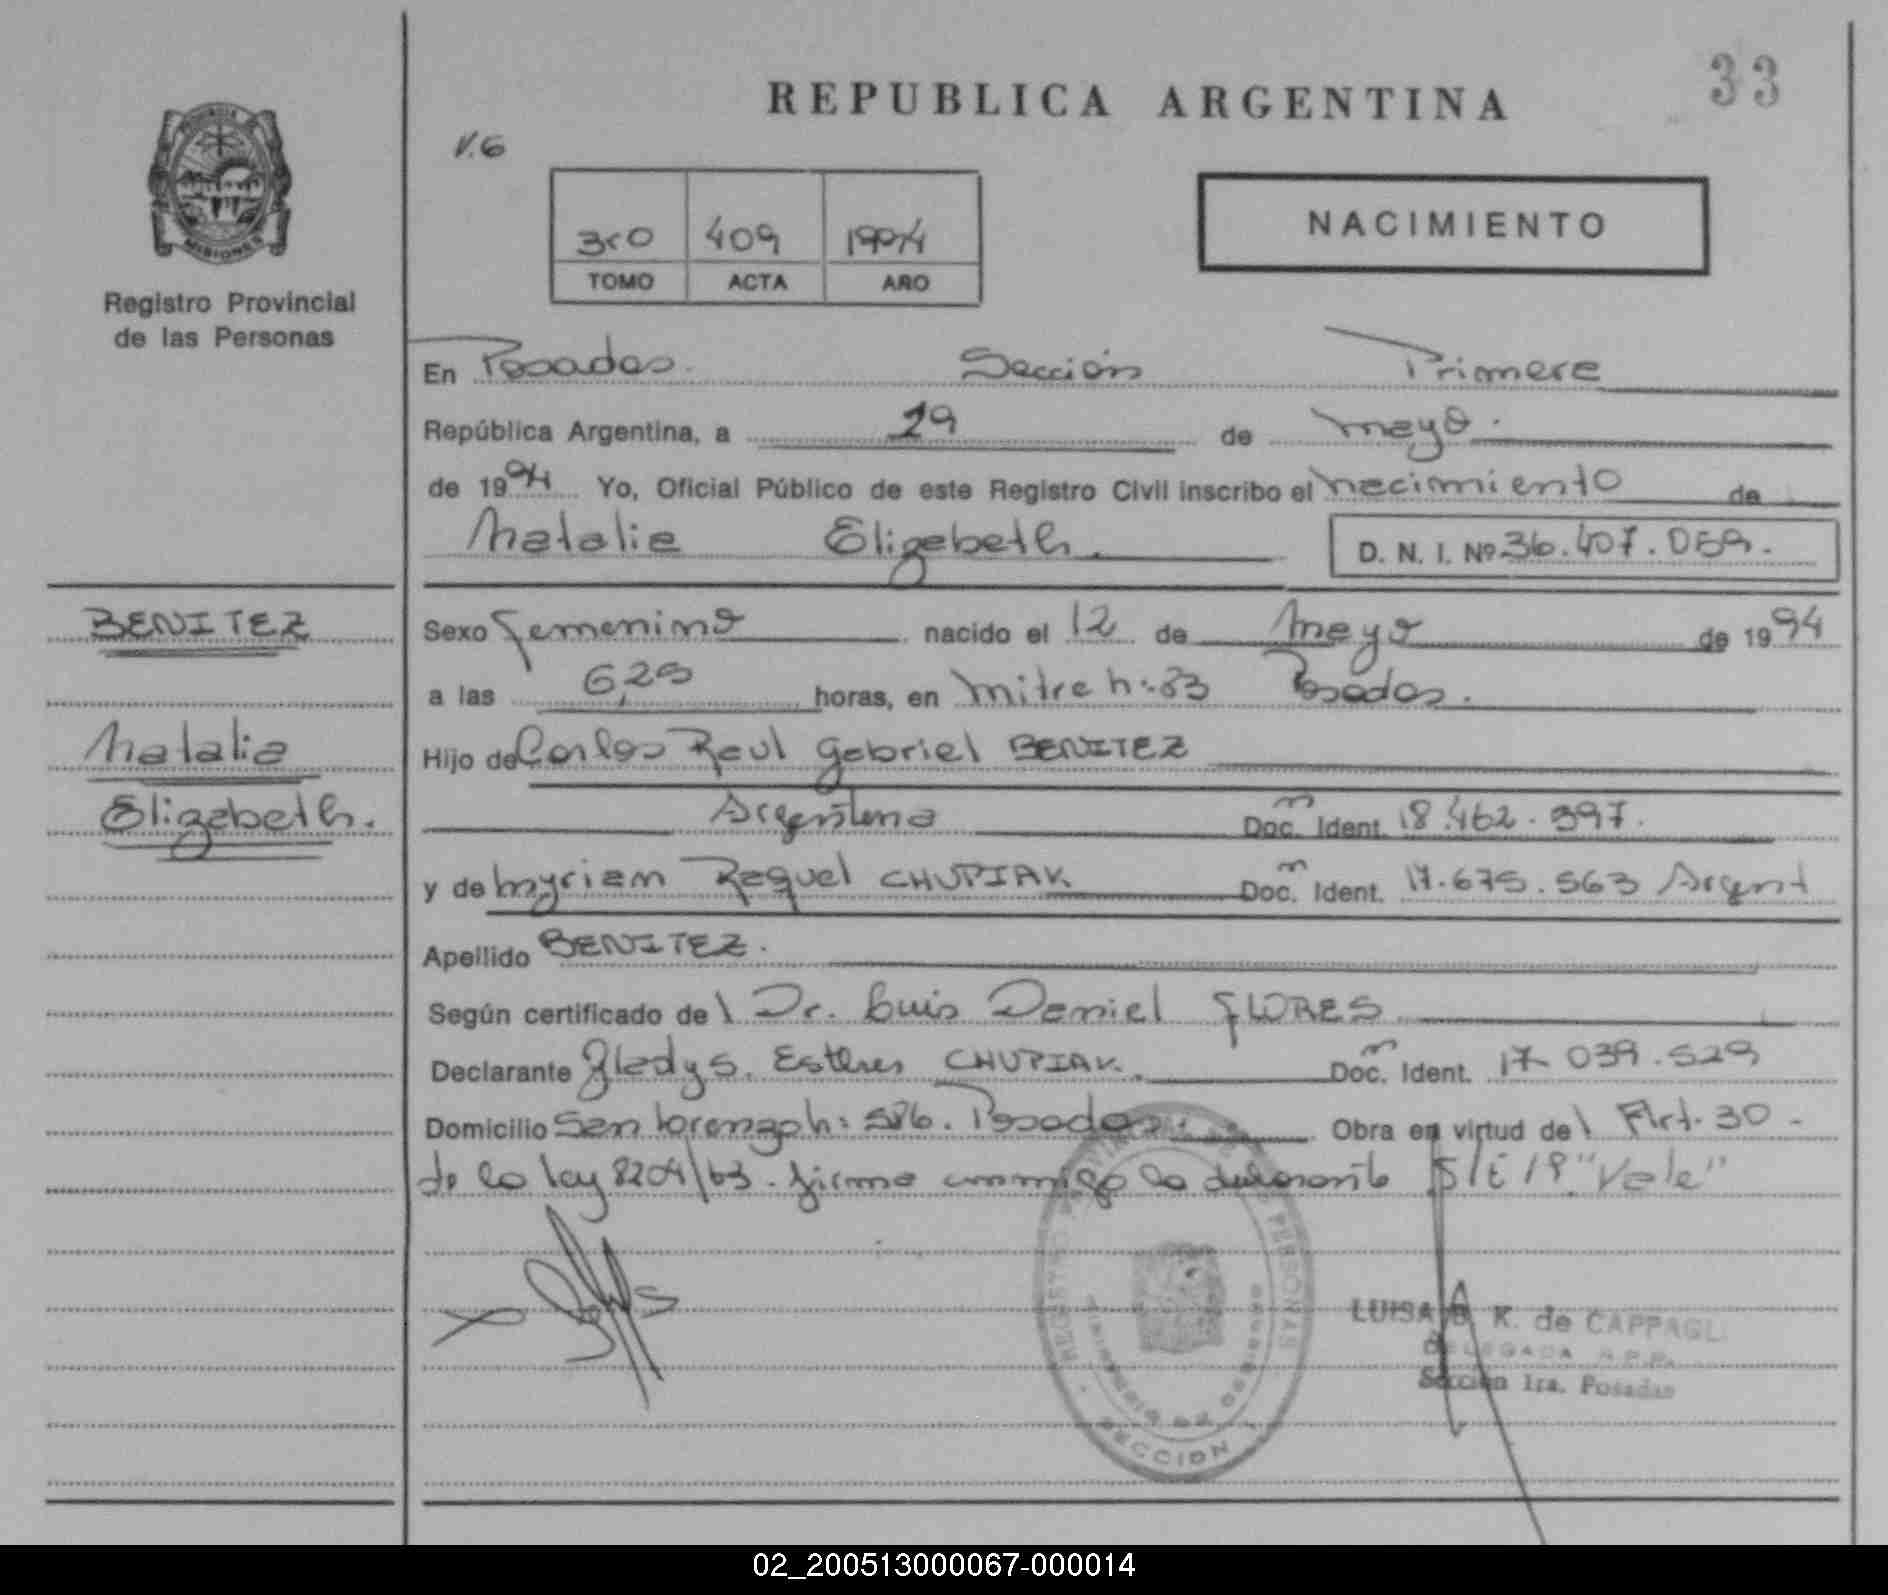 33
REPUBLICA ARGENTINA
V.6
3ro 409 1994
TOMO ACTA AÑO
NACIMIENTO
MISIONES
Registro Provincial
de las Personas
En Posadas. Sección Primera
República Argentina, a 19 de mayo.
de 1994 Yo, Oficial Público de este Registro Civil inscribo el nacimiento de
Natalia Elizabeth. D. N. I. Nº 36.407.059.
BENITEZ
Natalia
Elizabeth.
Sexo femenino nacido el 12 de Mayo de 1994
a las 6,25 horas, en Mitre n: 83 Posadas.
Hijo de Carlos Raul Gabriel BENITEZ
Argentino Doc. Ident. 18.462.397.
y de Myriam Raquel CHUPIAK Doc. Ident. 17.675.563 Argent
Apellido BENITEZ.
Según certificado del Dr. Luis Daniel FLORES
Declarante Gladys. Esther CHUPIAK. Doc. Ident. 17.039.529
Domicilio San Lorenzo n: 586. Posadas. Obra en virtud del Art. 30 -
de la ley 8204/63. firma conmigo la declarante S/E 19 "Vale"
REGISTRO PROVINCIAL DE LAS PERSONAS
MINISTERIO DE GOBIERNO
SECCION 1
LUISA K. de CAPPAGL
DELEGADA R.P.P.
Sección 1ra. Posadas
02_200513000067-000014